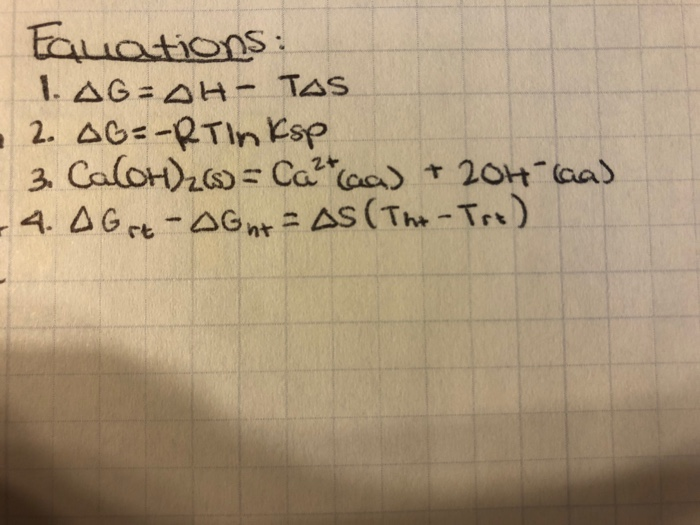 Equations:
1. ΔG = ΔH - TΔS
2. ΔG = -RTln Ksp
3. Ca(OH)₂(s) = Ca²⁺(aq) + 2OH⁻(aq)
4. ΔG rt - ΔG ht = ΔS (T ht - T rt)